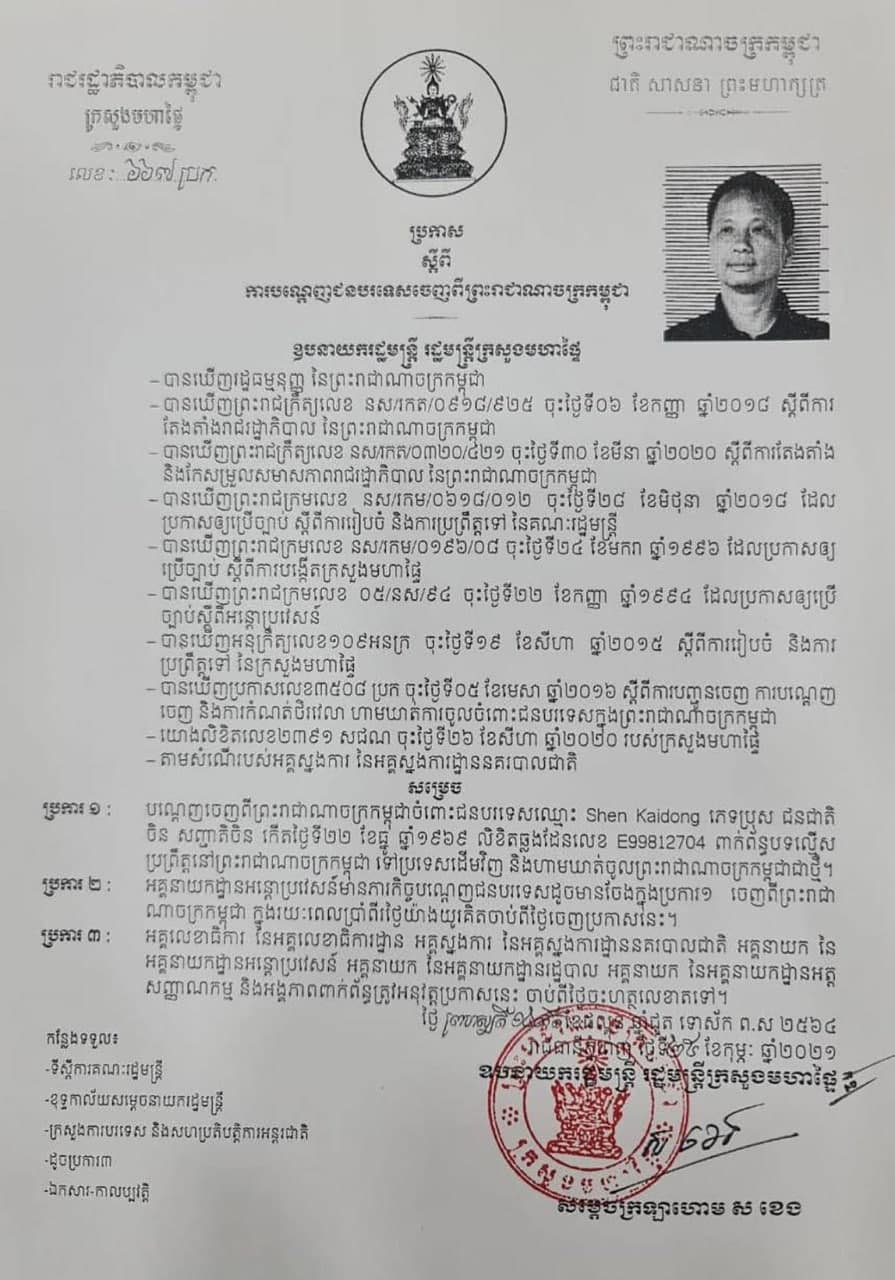 ព្រះរាជាណាចក្រកម្ពុជា
ជាតិ សាសនា ព្រះមហាក្សត្រ
រាជរដ្ឋាភិបាលកម្ពុជា
ក្រសួងមហាផ្ទៃ
លេខៈ ៦៦៧ ប្រក
ប្រកាស
ស្តីពី
ការបណ្តេញជនបរទេសចេញពីព្រះរាជាណាចក្រកម្ពុជា
ឧបនាយករដ្ឋមន្ត្រី រដ្ឋមន្ត្រីក្រសួងមហាផ្ទៃ
– បានឃើញរដ្ឋធម្មនុញ្ញ នៃព្រះរាជាណាចក្រកម្ពុជា
– បានឃើញព្រះរាជក្រឹត្យលេខ នស/រកត/០៩១៨/៩២៥ ចុះថ្ងៃទី០៦ ខែកញ្ញា ឆ្នាំ២០១៨ ស្តីពីការ
តែងតាំងរាជរដ្ឋាភិបាល នៃព្រះរាជាណាចក្រកម្ពុជា
– បានឃើញព្រះរាជក្រឹត្យលេខ នស/រកត/០៣២០/៤២១ ចុះថ្ងៃទី៣០ ខែមីនា ឆ្នាំ២០២០ ស្តីពីការតែងតាំង
និងកែសម្រួលសមាសភាពរាជរដ្ឋាភិបាល នៃព្រះរាជាណាចក្រកម្ពុជា
– បានឃើញព្រះរាជក្រមលេខ នស/រកម/០៦១៨/០១២ ចុះថ្ងៃទី២៨ ខែមិថុនា ឆ្នាំ២០១៨ ដែល
ប្រកាសឲ្យប្រើច្បាប់ ស្តីពីការរៀបចំ និងការប្រព្រឹត្តទៅ នៃគណៈរដ្ឋមន្ត្រី
– បានឃើញព្រះរាជក្រមលេខ នស/រកម/០១៩៦/០៨ ចុះថ្ងៃទី២៤ ខែមករា ឆ្នាំ១៩៩៦ ដែលប្រកាសឲ្យ
ប្រើច្បាប់ ស្តីពីការបង្កើតក្រសួងមហាផ្ទៃ
– បានឃើញព្រះរាជក្រមលេខ ០៥/នស/៩៤ ចុះថ្ងៃទី២២ ខែកញ្ញា ឆ្នាំ១៩៩៤ ដែលប្រកាសឲ្យប្រើ
ច្បាប់ស្តីពីអន្តោប្រវេសន៍
– បានឃើញអនុក្រឹត្យលេខ១០៩អនក្រ ចុះថ្ងៃទី១៩ ខែសីហា ឆ្នាំ២០១៥ ស្តីពីការរៀបចំ និងការ
ប្រព្រឹត្តទៅ នៃក្រសួងមហាផ្ទៃ
– បានឃើញប្រកាសលេខ៣៥០៨ ប្រក ចុះថ្ងៃទី០៥ ខែមេសា ឆ្នាំ២០១៦ ស្តីពីការបញ្ជូនចេញ ការបណ្តេញ
ចេញ និងការកំណត់ថិរវេលា ហាមឃាត់ការចូលចំពោះជនបរទេសក្នុងព្រះរាជាណាចក្រកម្ពុជា
– យោងលិខិតលេខ២៣៩១ សជណ ចុះថ្ងៃទី២៦ ខែសីហា ឆ្នាំ២០២០ របស់ក្រសួងមហាផ្ទៃ
– តាមសំណើរបស់អគ្គស្នងការ នៃអគ្គស្នងការដ្ឋាននគរបាលជាតិ
សម្រេច
ប្រការ ១ : បណ្តេញចេញពីព្រះរាជាណាចក្រកម្ពុជាចំពោះជនបរទេសឈ្មោះ Shen Kaidong ភេទប្រុស ជនជាតិ
ចិន សញ្ជាតិចិន កើតថ្ងៃទី២២ ខែធ្នូ ឆ្នាំ១៩៦៩ លិខិតឆ្លងដែនលេខ E99812704 ពាក់ព័ន្ធបទល្មើស
ប្រព្រឹត្តនៅព្រះរាជាណាចក្រកម្ពុជា ទៅប្រទេសដើមវិញ និងហាមឃាត់ចូលព្រះរាជាណាចក្រកម្ពុជាជាថ្មី។
ប្រការ ២ : អគ្គនាយកដ្ឋានអន្តោប្រវេសន៍មានភារកិច្ចបណ្តេញជនបរទេសដូចមានចែងក្នុងប្រការ១ ចេញពីព្រះរាជា
ណាចក្រកម្ពុជា ក្នុងរយៈពេលប្រាំពីរថ្ងៃយ៉ាងយូរគិតចាប់ពីថ្ងៃចេញប្រកាសនេះ។
ប្រការ ៣ : អគ្គលេខាធិការ នៃអគ្គលេខាធិការដ្ឋាន អគ្គស្នងការ នៃអគ្គស្នងការដ្ឋាននគរបាលជាតិ អគ្គនាយក នៃ
អគ្គនាយកដ្ឋានអន្តោប្រវេសន៍ អគ្គនាយក នៃអគ្គនាយកដ្ឋានរដ្ឋបាល អគ្គនាយក នៃអគ្គនាយកដ្ឋានអត្ត
សញ្ញាណកម្ម និងអង្គភាពពាក់ព័ន្ធត្រូវអនុវត្តប្រកាសនេះ ចាប់ពីថ្ងៃចុះហត្ថលេខាតទៅ។
ថ្ងៃ ខែផល្គុន ឆ្នាំជូត ទោស័ក ព.ស ២៥៦៤
រាជធានីភ្នំពេញ ថ្ងៃទី ខែកុម្ភៈ ឆ្នាំ២០២១
ឧបនាយករដ្ឋមន្ត្រី រដ្ឋមន្ត្រីក្រសួងមហាផ្ទៃ
ក្រសួងមហាផ្ទៃ
សម្តេចក្រឡាហោម ស ខេង
កន្លែងទទួល៖
-ទីស្តីការគណៈរដ្ឋមន្ត្រី
-ខុទ្ទកាល័យសម្តេចនាយករដ្ឋមន្ត្រី
-ក្រសួងការបរទេស និងសហប្រតិបត្តិការអន្តរជាតិ
-ដូចប្រការ៣
-ឯកសារ-កាលប្បវត្តិ